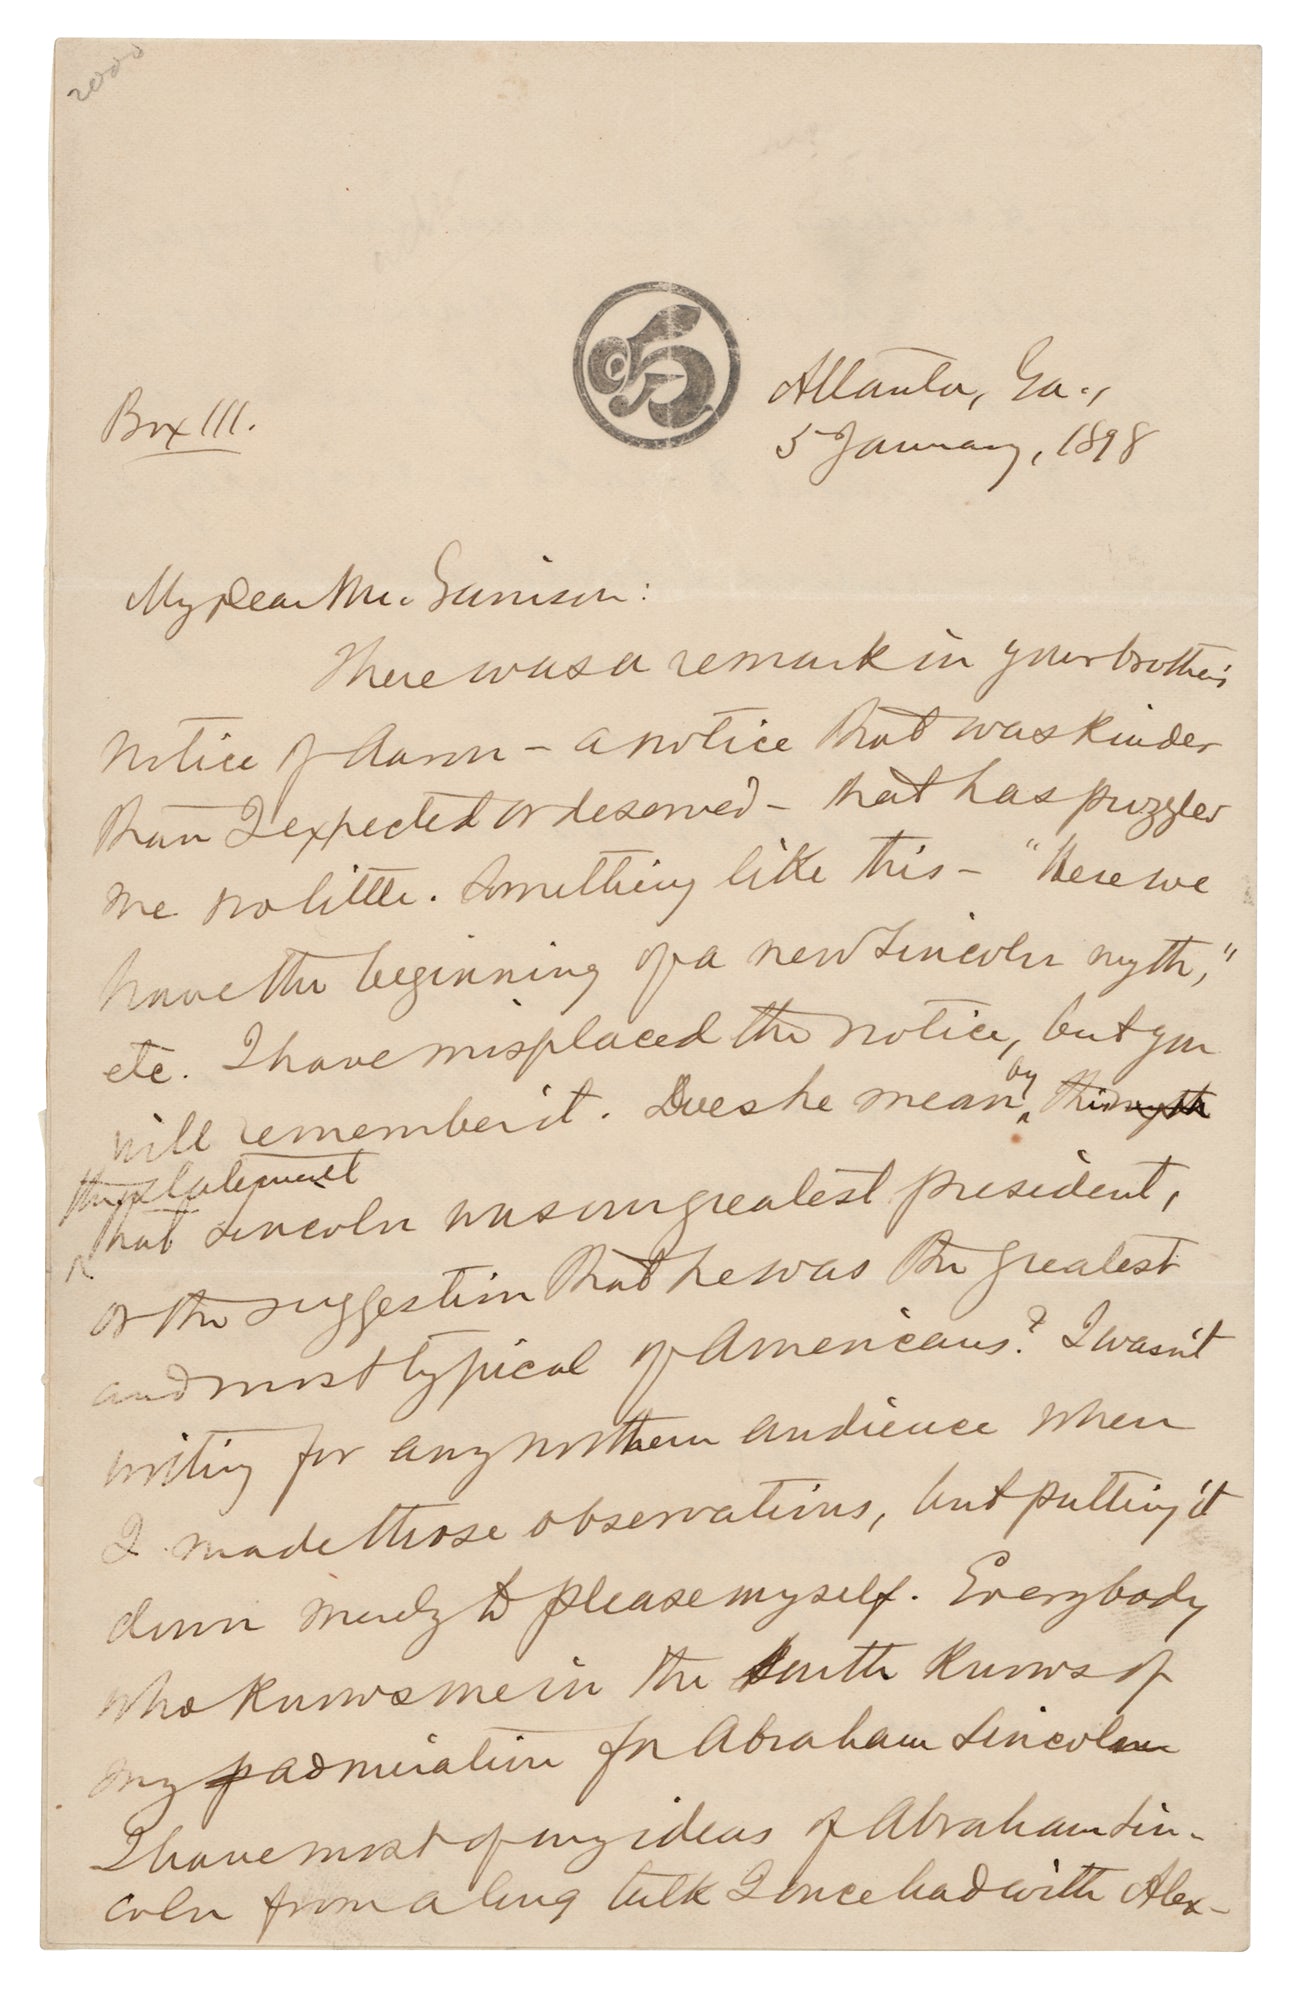 2000
Box 111.
Atlanta, Ga.,
5 January, 1898
My dear Mr. Garrison:
There was a remark in your brother's
notice of Aaron – a notice that was kinder
than I expected or deserved – that has puzzled
me no little. Something like this – "Here we
have the beginning of a new Lincoln myth,"
etc. I have misplaced the notice, but you
will remember it. Does he mean by this myth
the statement
that Lincoln was our greatest president,
or the suggestion that he was the greatest
and most typical of Americans? I wasn't
writing for any northern audience when
I made those observations, but putting it
down merely to please myself. Everybody
who knows me in the South knows of
my admiration for Abraham Lincoln
I have most of my ideas of Abraham Lin-
coln from a long talk I once had with Alex-